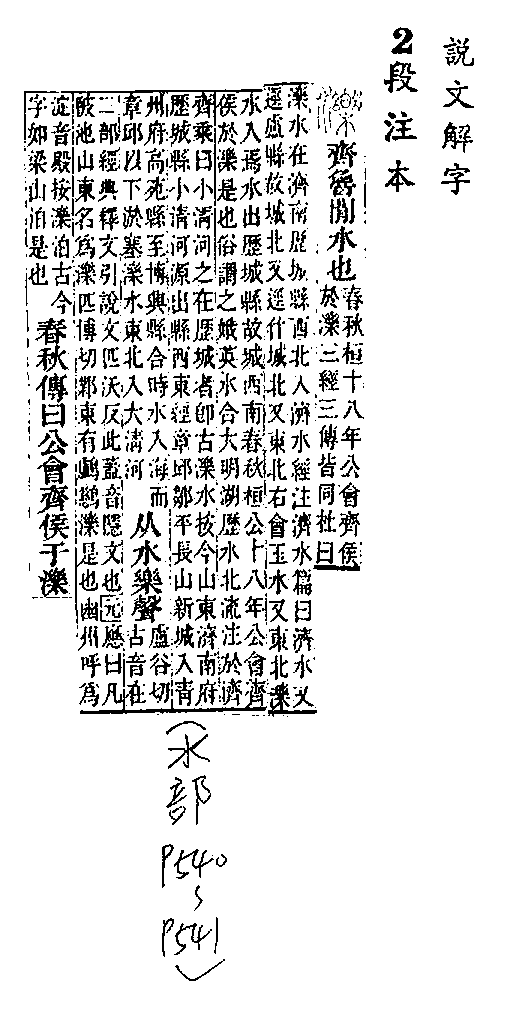 說文解字
2段注本
濼 齊魯閒水也 春秋桓十八年公會齊侯
於濼三經三傳皆同杜曰
濼水在濟南歷城縣西北入濟水經注濟水篇曰濟水又
逕盧縣故城北又逕什城北又東北右會玉水又東北濼
水入焉水出歷城縣故城西南春秋桓公十八年公會齊
侯於濼是也俗謂之娥英水合大明湖歷水北流注於濟
齊乘曰小淸河之在歷城者卽古濼水按今山東濟南府
歷城縣小淸河源出縣西東經章邱鄒平長山新城入靑
州府高苑縣至博興縣合時水入海而
章邱以下淤塞濼水東北入大淸河
从水樂聲 盧谷切
古音在
二部經典釋文引說文匹沃反此蓋音隱文也元應曰凡
陂池山東名爲濼匹博切鄴東有鸕鷀濼是也幽州呼爲
淀音殿按濼泊古今
字如梁山泊是也
春秋傳曰公會齊侯于濼
(水部
P540
~
P541)